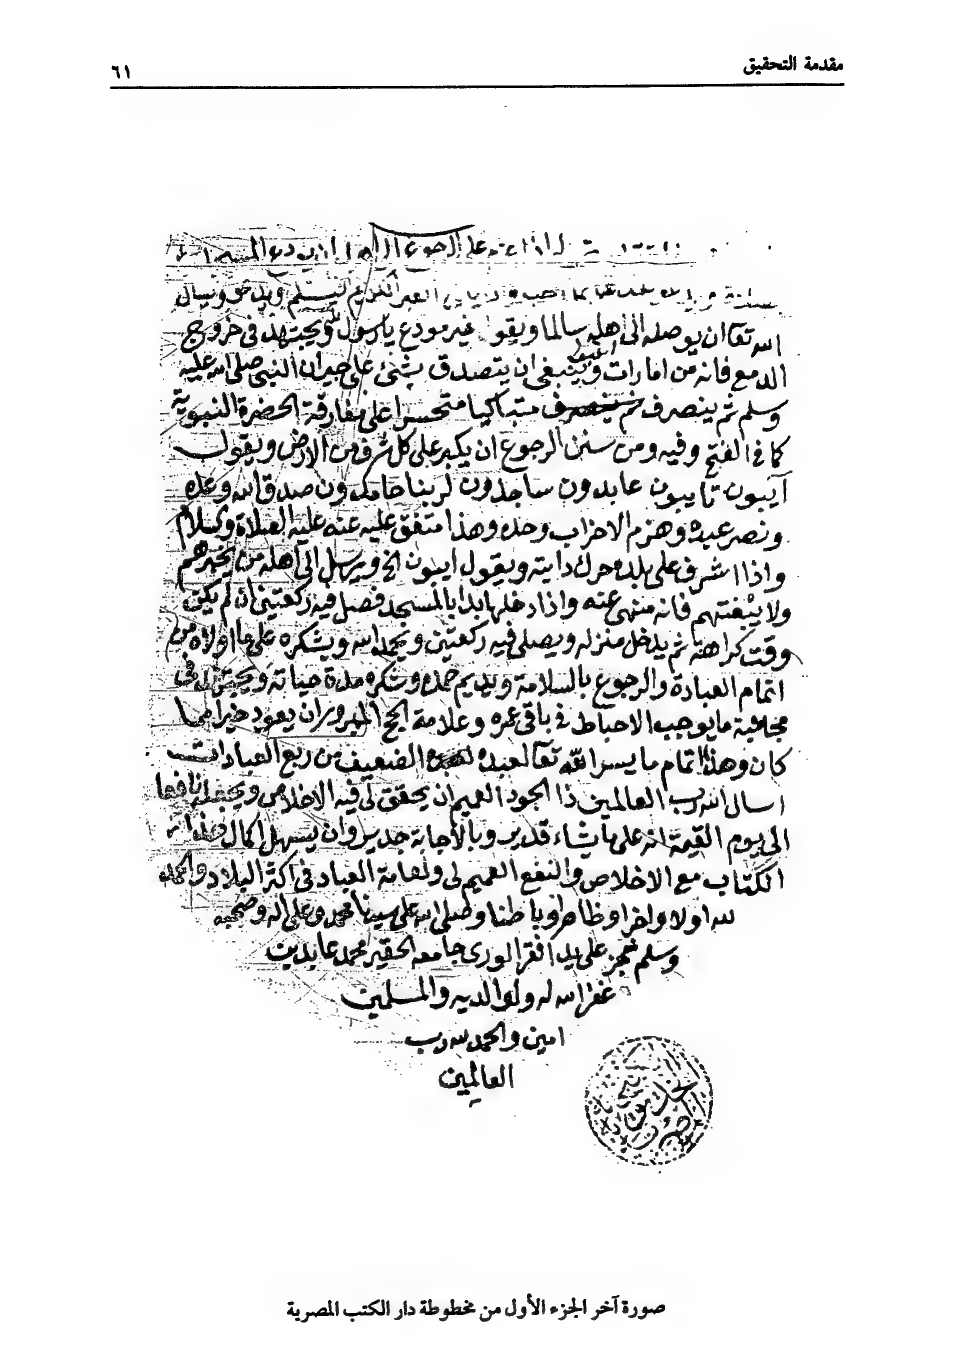 مقدمة التحقيق
٦١
على الرجوع الى
الله تعا ان يوصله الى اهله سالما ويقول غير مودع يا رسول الله ويجتهد في خروج
الدمع فانه من امارات القبول وينبغي ان يتصدق بشئ على جيران النبي صلى الله عليه
وسلم ثم ينصرف متباكيا متحسرا على مفارقة الحضرة النبوية
كما في الفتح وفيه ومن سنن الرجوع ان يكبر على كل شرف من الارض ويقول
آيبون تايبون عابدون ساجدون لربنا حامدون صدق الله وعده
ونصر عبده وهزم الاحزاب وحده وهذا متفق عليه عنه عليه الصلاة والسلام
واذا اشرف على بلده حرك دابته ويقول ايبون الخ ويرسل الى اهله من يخبرهم
ولا يبغتهم فانه منهي عنه واذا دخلها بدا بالمسجد فصلى فيه ركعتين ان لم يكن
وقت كراهة ثم يدخل منزله ويصلي فيه ركعتين ويحمد الله ويشكره على ما اولاه من
اتمام العبادة والرجوع بالسلامة ويديم حمده وشكره مدة حياته ويجتهد في
مجانبة ما يوجب الاحباط في باقي عمره وعلامة الحج المبرور ان يعود خيرا مما
كان وهذا اتمام ما يسر الله تعالى لعبده الضعيف من ربع العبادات
اسال الله رب العالمين ذا الجود العميم ان يحقق لي فيه الاخلاص ويجعله نافعا
الى يوم القيمة انه على ما يشاء قدير وبالاجابة جدير وان يسهل اكمال هذا
الكتاب مع الاخلاص والنفع العميم لي ولعامة العباد في اكثر البلاد والحمد
لله اولا واخرا وظاهرا وباطنا وصلى الله على سيدنا محمد وعلى اله وصحبه
وسلم نجز على يد افقر الورى جامعه الحقير محمد عابدين
غفر الله له ولوالديه والمسلمين
امين والحمد لله رب
العالمين
صورة آخر الجزء الأول من مخطوطة دار الكتب المصرية